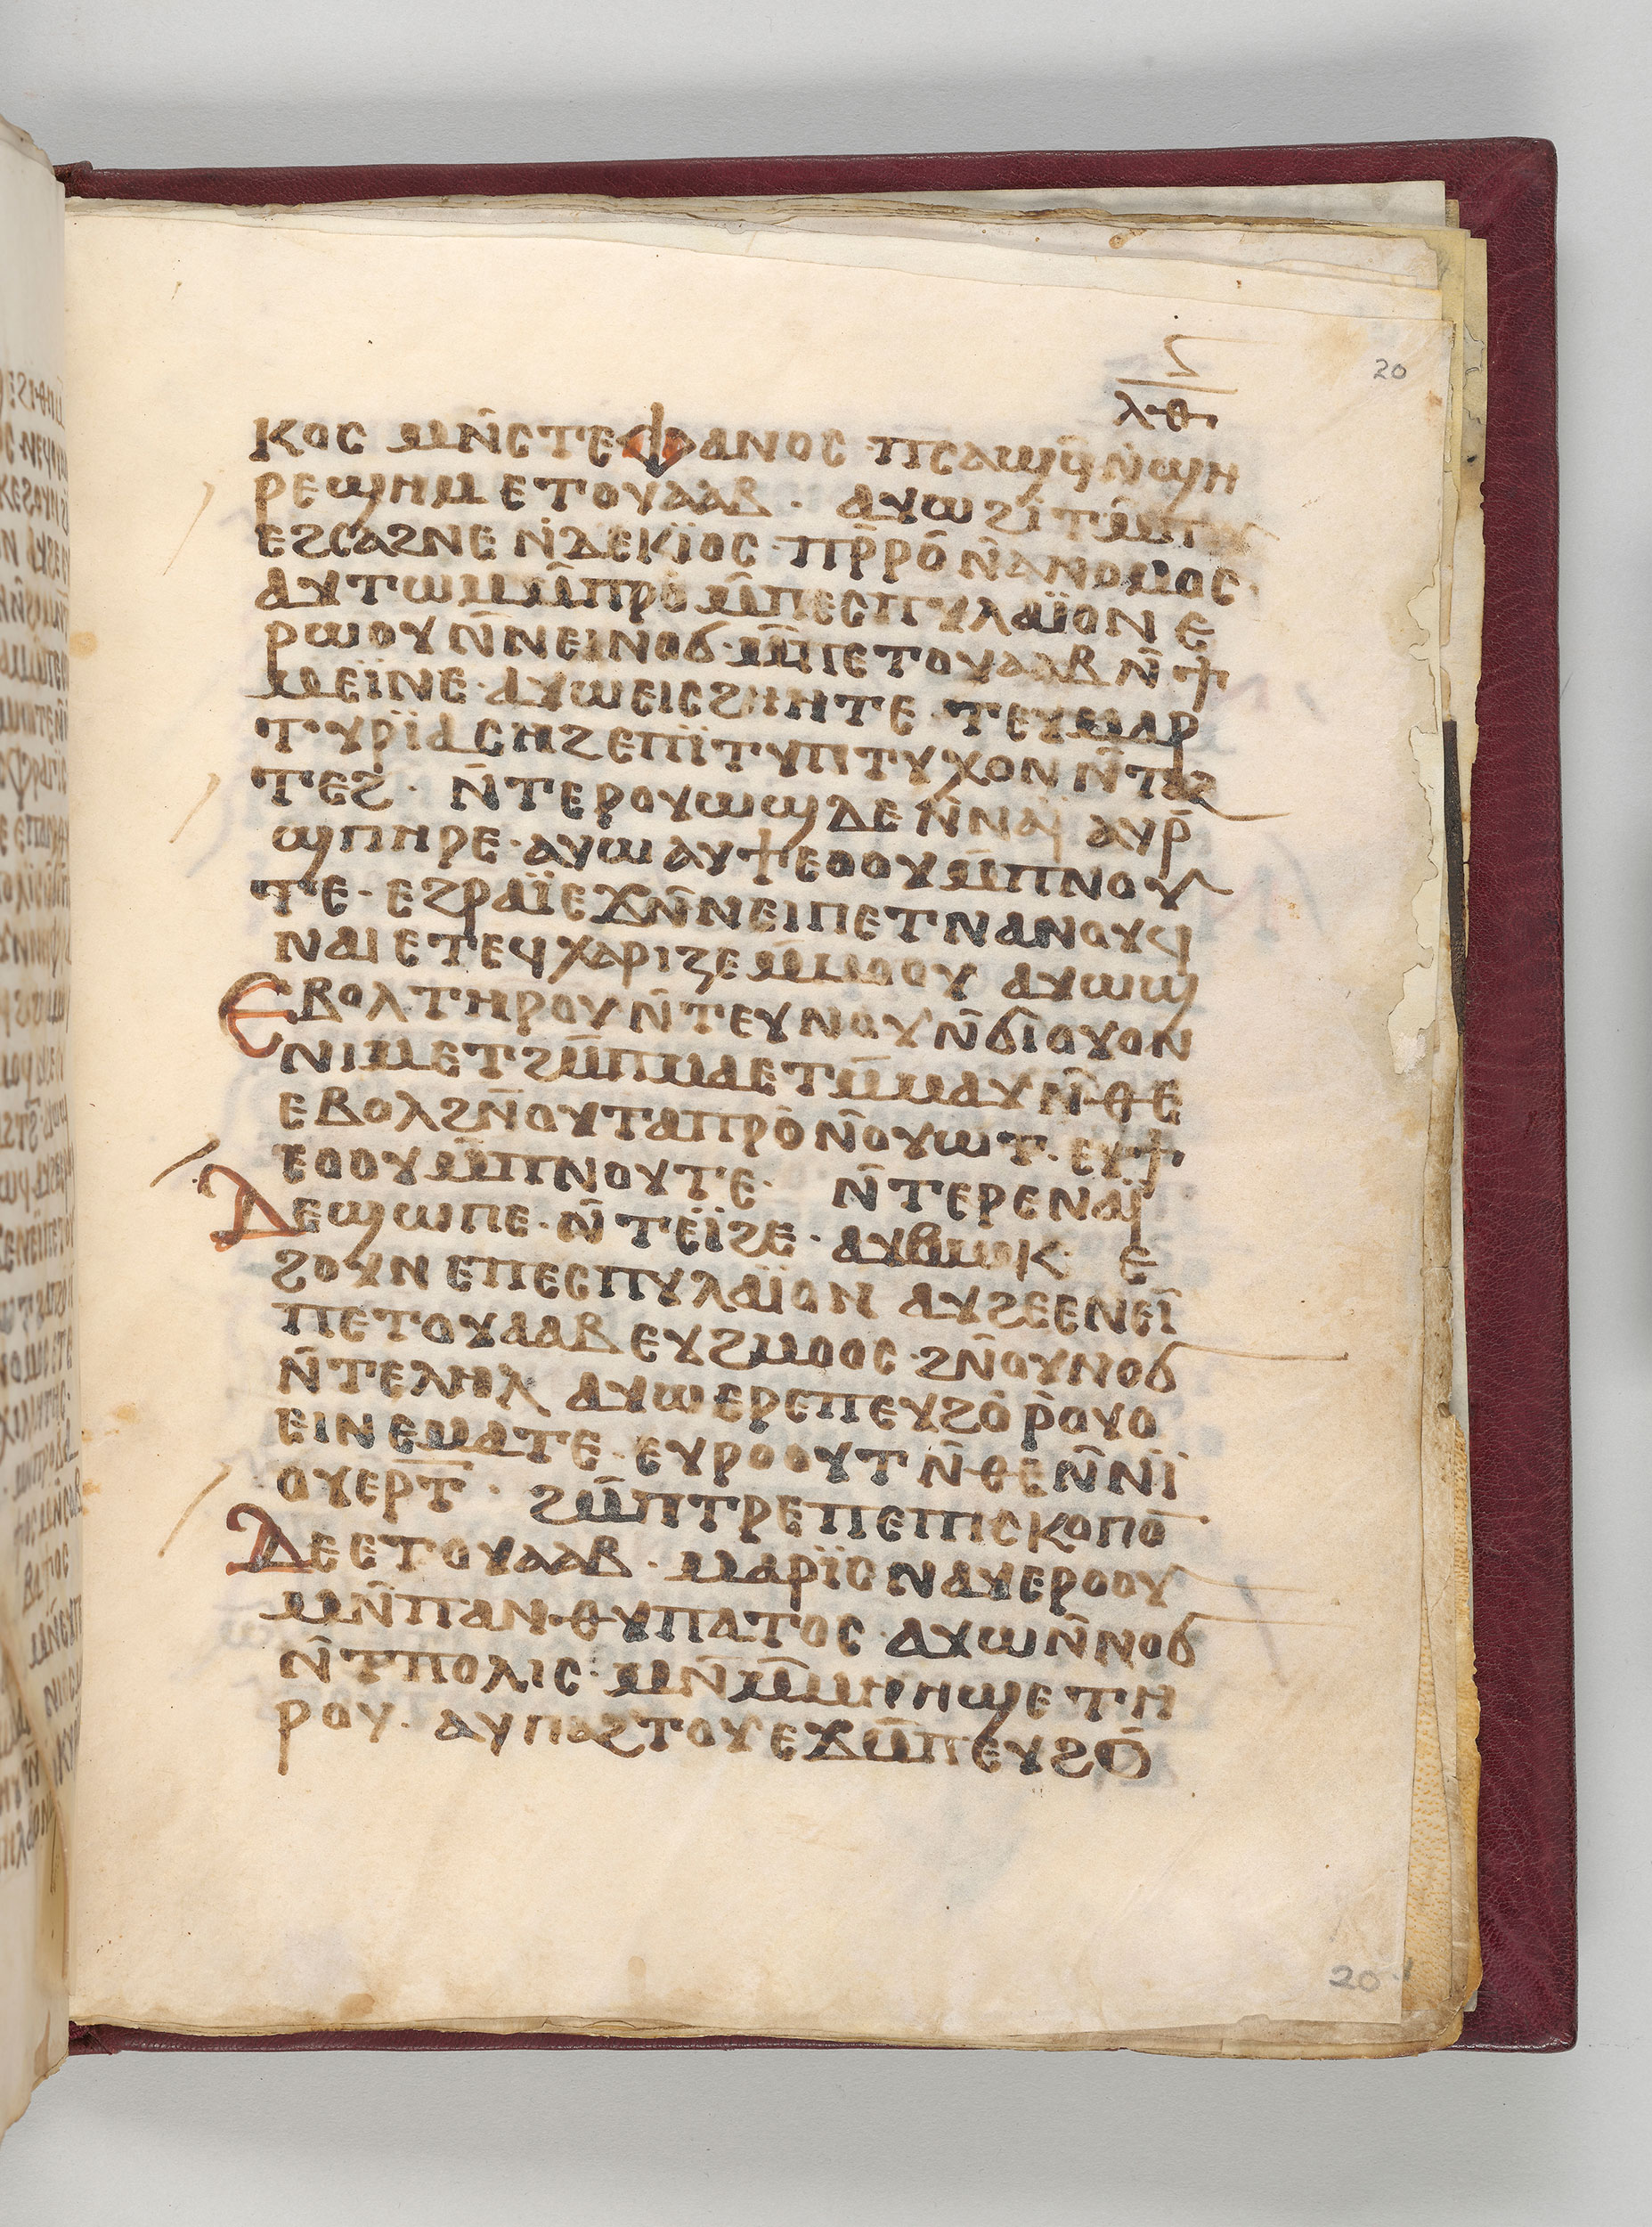 20
ⲗⲑ
ⲕⲟⲥ ⲙⲛ̄ⲥⲧⲉⲫⲁⲛⲟⲥ ⲡⲥⲁϣϥ̄ⲛ̄ϣⲏ
ⲣⲉϣⲏⲙⲉⲧⲟⲩⲁⲁⲃ · ⲁⲩⲱϩⲓⲧⲙ̄ⲡ
ⲉϩⲥⲁϩⲛⲉ ⲛ̄ⲇⲉⲕⲓⲟⲥ ⲡⲣ̄ⲣⲟ ⲛ̄ⲁⲛⲟⲙⲟⲥ ·
ⲁⲩⲧⲱⲙⲙ̄ⲡⲣⲟ ⲙ̄ⲡⲉⲥⲡⲩⲗⲁⲓ̈ⲟⲛ ⲉ
ⲣⲱⲟⲩⲛ̄ⲛⲉⲓⲛⲟϭ ⲙ̄ⲡⲉⲧⲟⲩⲁⲁⲃ ⲛ̄ϯ
ⲙⲉⲓ̈ⲛⲉ · ⲁⲩⲱⲉⲓⲥϩⲏⲏⲧⲉ ⲧⲉⲩⲙⲁⲣ
ⲧⲩⲣⲓ̈ⲁⲥⲏϩⲉⲡⲓ̈ⲧⲩⲡⲧⲩⲭⲟⲛ ⲛ̄ⲧⲁϩ
ⲧⲉϩ · ⲛ̄ⲧⲉⲣⲟⲩⲱϣⲇⲉ ⲛ̄ⲛⲁⲓ̈ ⲁⲩⲣ̄
ϣⲡⲏⲣⲉ · ⲁⲩⲱ ⲁⲩϯⲉⲟⲟⲩⲙ̄ⲡⲛⲟⲩ
ⲧⲉ · ⲉϩⲣⲁⲓ̈ⲉϫⲛ̄ⲛⲉⲓⲡⲉⲧⲛⲁⲛⲟⲩϥ
ⲛⲁⲓⲉⲧⲉϥⲭⲁⲣⲓⲍⲉⲙ̄ⲙⲟⲟⲩ ⲁⲩⲱϣ
ⲉⲃⲟⲗⲧⲏⲣⲟⲩ ⲛ̄ⲧⲉⲩⲛⲟⲩ ⲛ̄ϭⲓⲟⲩⲟⲛ
ⲛⲓⲙⲉⲧϩⲙ̄ⲡⲙⲁⲉⲧⲙ̄ⲙⲁⲩ ⲛ̄ⲑⲉ
ⲉⲃⲟⲗϩⲛ̄ⲟⲩⲧⲁⲡⲣⲟ ⲛ̄ⲟⲩⲱⲧ · ⲉⲩϯ
ⲉⲟⲟⲩⲙ̄ⲡⲛⲟⲩⲧⲉ · ⲛ̄ⲧⲉⲣⲉⲛⲁⲓ̈
ⲇⲉϣⲱⲡⲉ · ⲛ̄ⲧⲉⲓ̈ϩⲉ · ⲁⲩⲃⲱⲕ ⲉ
ϩⲟⲩⲛ ⲉⲡⲉⲥⲡⲩⲗⲁⲓ̈ⲟⲛ ⲁⲩϩⲉⲉⲛⲉⲓ̈
ⲡⲉⲧⲟⲩⲁⲁⲃ ⲉⲩϩⲙⲟⲟⲥ ϩⲛ̄ⲟⲩⲛⲟϭ
ⲛ̄ⲧⲉⲗⲏⲗ ⲁⲩⲱⲉⲣⲉⲡⲉⲩϩⲟ ⲣ̀ⲟⲩⲟ
ⲉⲓⲛⲉⲙⲁⲧⲉ ⲉⲩⲣⲟⲟⲩⲧ ⲛ̄ⲑⲉⲛ̄ⲛⲓ̈
ⲟⲩⲉⲣⲧ̄ · ϩⲙ̄ⲡⲧⲣⲉⲡⲉⲡⲓⲥⲕⲟⲡⲟ̄
ⲇⲉⲉⲧⲟⲩⲁⲁⲃ · ⲙⲁⲣⲓ̈ⲥ ⲛⲁⲩⲉⲣⲟⲟⲩ
ⲙⲛ̄ⲡⲁⲛⲑⲩⲡⲁⲧⲟⲥ · ⲁⲩⲱⲛ̄ⲛⲟϭ
ⲛ̄ⲧⲡⲟⲗⲓⲥ · ⲙⲛ̄ⲙ̄ⲙⲏⲏϣⲉⲧⲏ
ⲣⲟⲩ · ⲁⲩⲡⲁϩⲧⲟⲩⲉϫⲙ̄ⲡⲉⲩϩⲟ̄
20